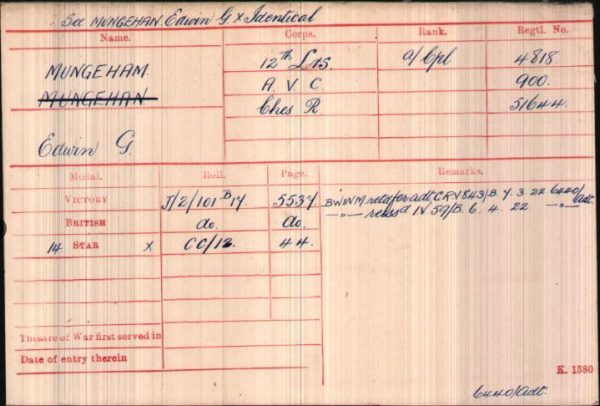 See MUNGEHAN. Edwin G x Identical
Name. Corps. Rank. Regtl. No.
MUNGEHAM 12th Lrs. a/Cpl 4818
MUNGEHAN A. V. C 900.
Ches R 51644.
Edwin G.
Medal. Roll. Page. Remarks.
VICTORY J/2/101 B 17 5537 BWVM retd for adt CRV 843/B. 7. 3. 22 6440/adt.
BRITISH do. do. —"— reissd IV 59/B. 6. 4. 22 —"—
14 STAR x CC/12. 44.
Theatre of War first served in
Date of entry therein
K. 1380
6440/adt.